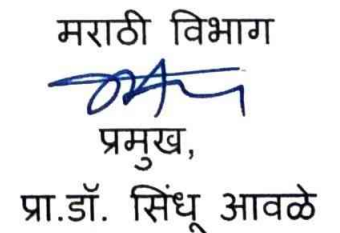 मराठी विभाग
प्रमुख,
प्रा.डॉ. सिंधू आवळे